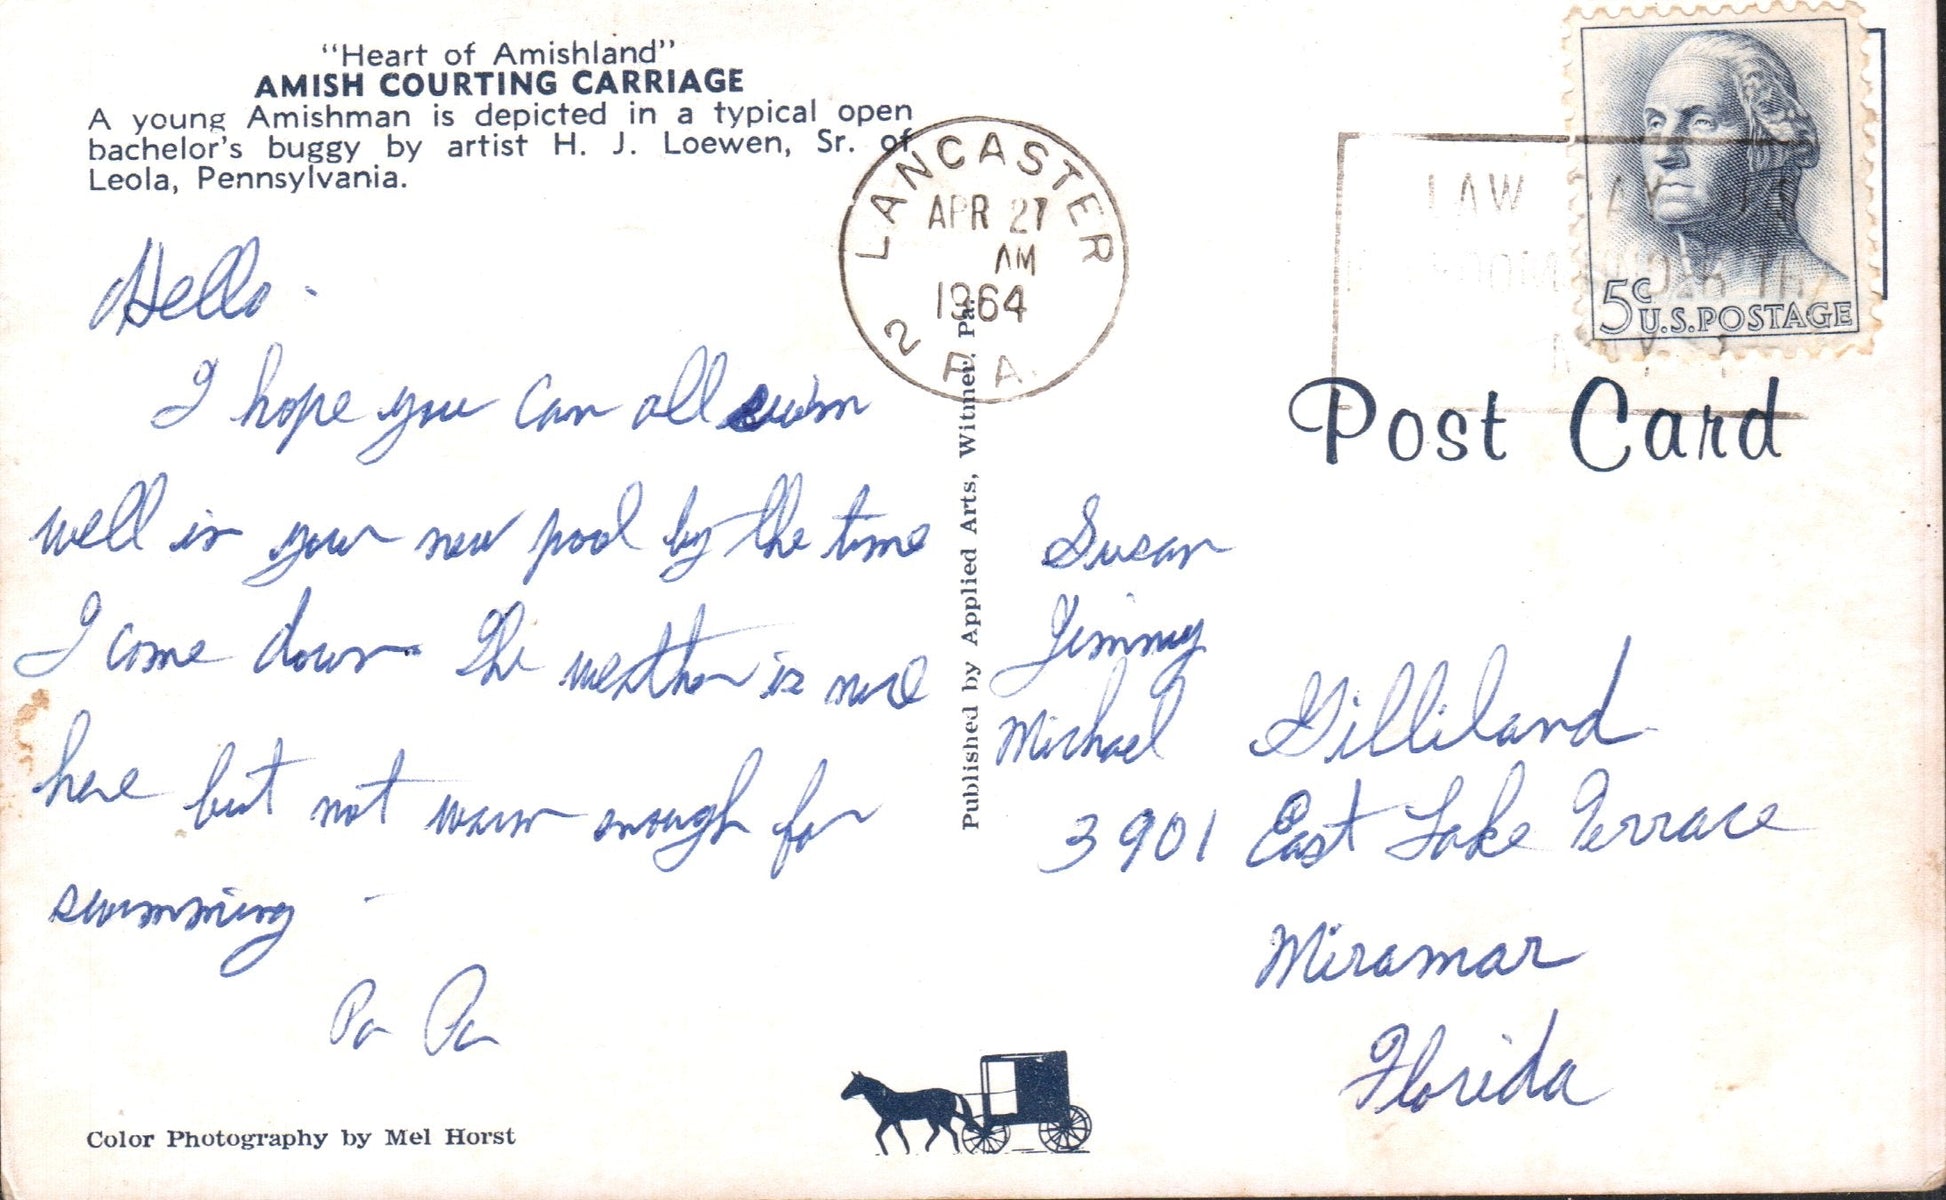 "Heart of Amishland"
AMISH COURTING CARRIAGE
A young Amishman is depicted in a typical open
bachelor's buggy by artist H. J. Loewen, Sr. of
Leola, Pennsylvania.
Hello -
I hope you can all swim
well in your new pool by the time
I come down. The weather is nice
here but not warm enough for
swimming -
Pa Pa
Color Photography by Mel Horst
LANCASTER
APR 27
AM
1964
2 PA.
Published by Applied Arts, Witmer, Pa.
LAW DAY U S
MAY 1
5c
U.S. POSTAGE
Post Card
Susan
Jimmy
Michael Gilliland
3901 East Lake Terrace
Miramar
Florida